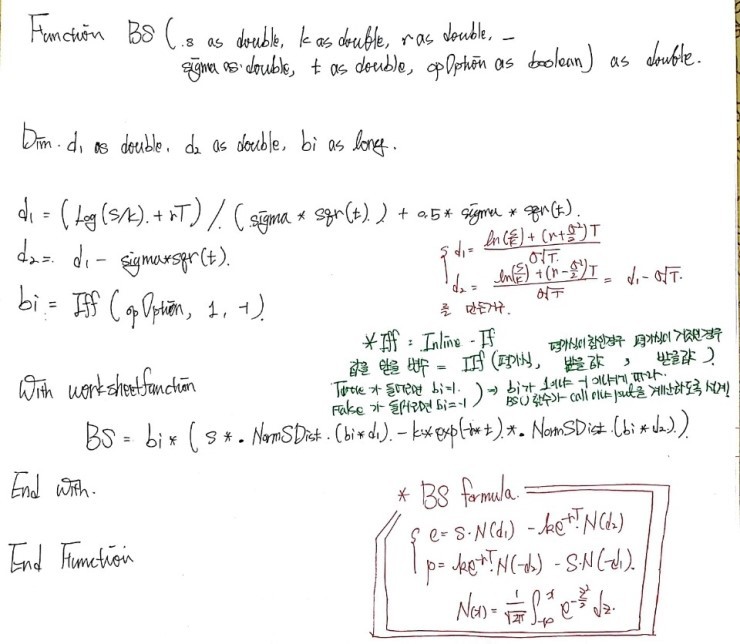 Function BS (.s as double, k as double, r as double, _
sigma as double, t as double, opOption as boolean) as double.
Dim. d₁ as double, d₂ as double, bi as long.
d₁ = (Log(S/k) + rT) / (sigma * sqr(t)) + 0.5 * sigma * sqr(t).
d₂ = d₁ - sigma*sqr(t).
bi = Iff (opOption, 1, -1)
{ d₁ = ln(S/k) + (r + σ²/2)T / σ√T.
d₂ = ln(S/k) + (r - σ²/2)T / σ√T = d₁ - σ√T.
를 만든거.
* Iff = Inline - If
평가식이 참인경우 평가식이 거짓인경우
값을 받을 변수 = IIf (평가식, 받을값, 받을값)
True가 들어오면 bi=1.
False가 들어오면 bi=-1
) → bi가 1이냐 -1이냐에 따라.
BS() 함수가 call이냐 put을 계산하도록 설계!
With worksheetfunction
BS = bi * (s * .NormSDist.(bi*d₁) - k*exp(-r*t) * .NormSDist.(bi*d₂))
End with.
End Function
* BS formula.
{ c = S·N(d₁) - ke⁻ʳᵀN(d₂)
p = ke⁻ʳᵀN(-d₂) - S·N(-d₁).
N(x) = 1/√2π ∫₋∞ˣ e^(-z²/2) dz.